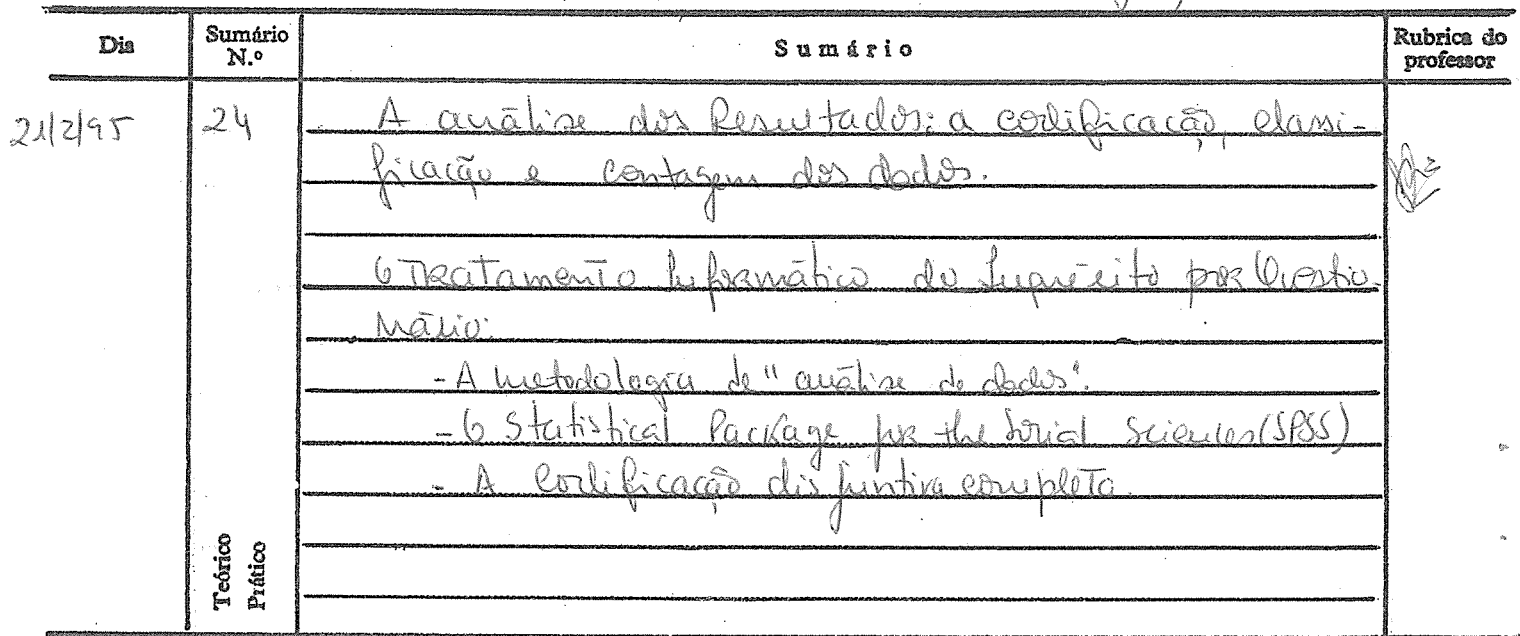 Dia Sumário N.º Sumário Rubrica do professor
21/2/95 24 A análise dos Resultados: a codificação, classi-
ficação e contagem dos dados.
O Tratamento Informático do Inquérito por Questio-
nário:
- A metodologia de "análise de dados".
- O Statistical Package for the Social Sciences (SPSS)
- A codificação disjuntiva completa.
Teórico
Prático